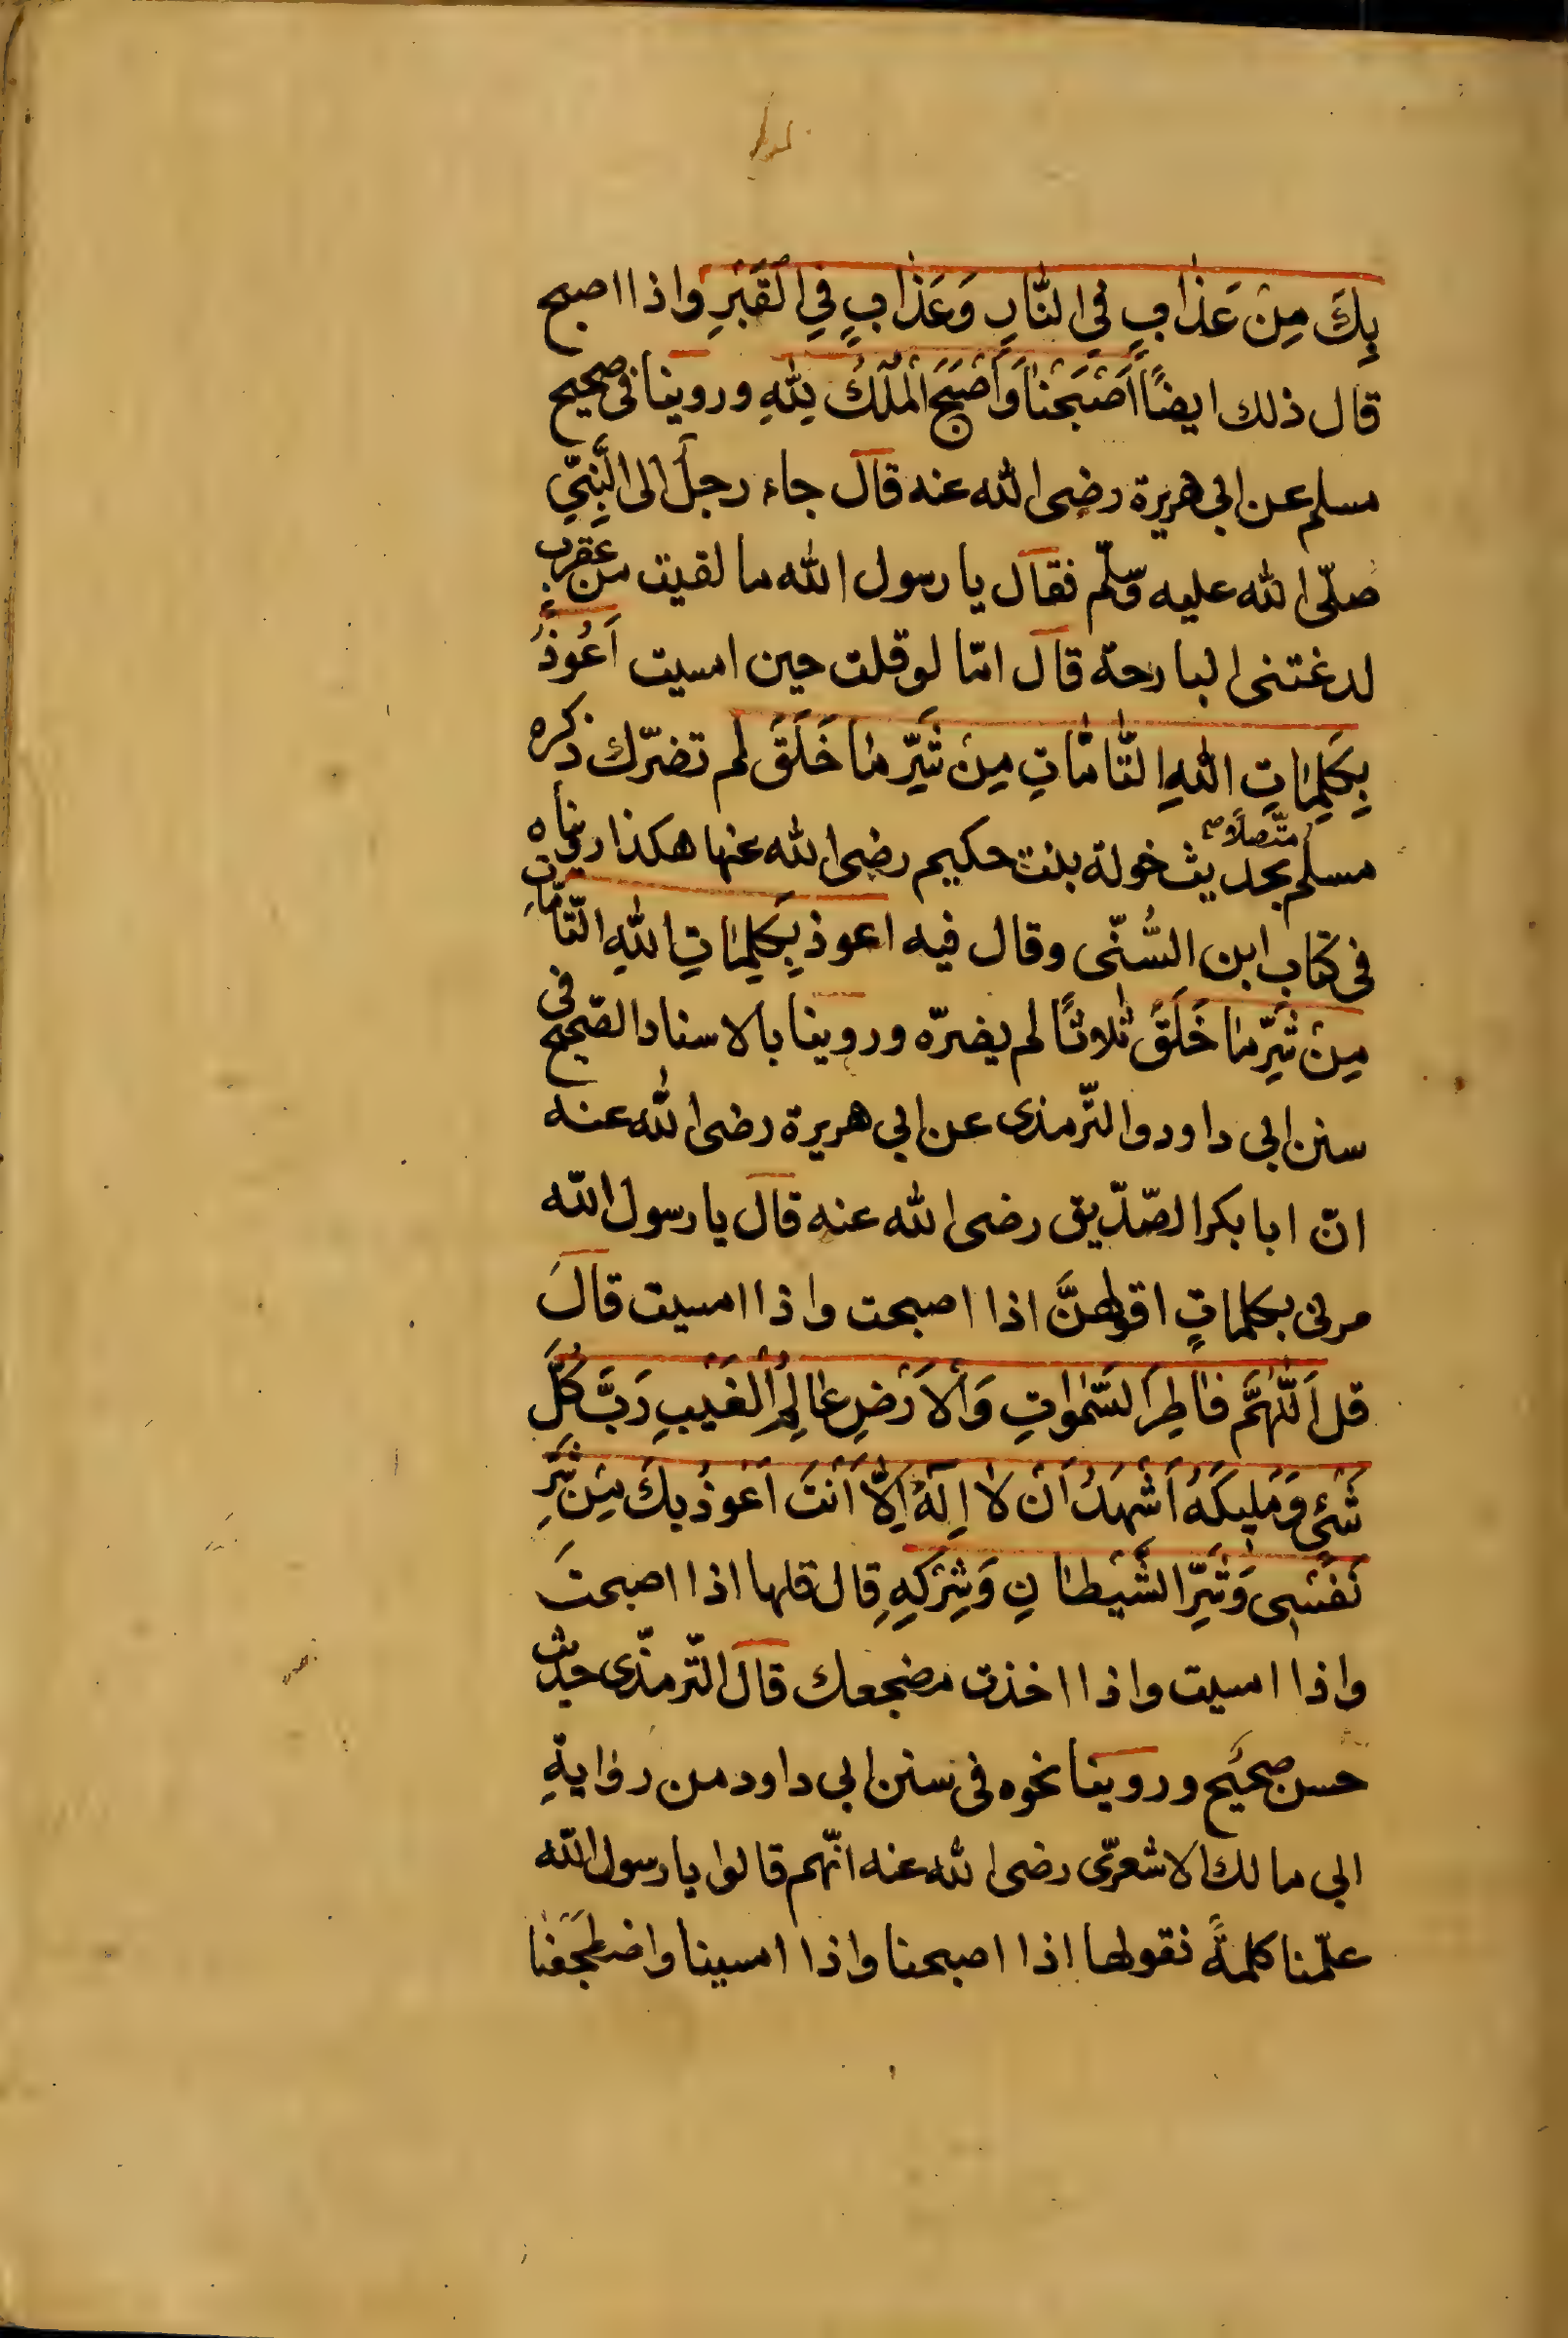 بِكَ مِنْ عَذَابٍ فِي النَّارِ وَعَذَابٍ فِي الْقَبْرِ واذا اصبح
قال ذلك ايضًا اَصْبَحْنَا وَاَصْبَحَ الْمُلْكُ لِلّٰهِ وروينا فى صحيح
مسلم عن ابى هريرة رضى الله عنه قال جاء رجل الى النَّبِيّ
صلّى الله عليه وسّلم فقال يا رسول الله ما لقيت من عقرب
لدغتنى البارحة قال امّا لو قلت حين امسيت اَعُوذُ
بِكَلِمَاتِ اللّٰهِ التَّامَّاتِ مِنْ شَرِّ مَا خَلَقَ لم تضرّك ذكره
مسلم متّصلًا بحديث خولة بنت حكيم رضى الله عنها هكذا رويناه
فى كتاب ابن السُّنّى وقال فيه اعوذ بِكَلِمَاتِ اللّٰهِ التَّامَّاتِ
مِنْ شَرِّ مَا خَلَقَ ثلاثًا لم يضرّه وروينا بالاسناد الصّحيح فى
سنن ابى داود والتّرمذى عن ابى هريرة رضى الله عنه
انّ ابا بكر الصّدّيق رضى الله عنه قال يا رسول الله
مرنى بكلماتٍ اقولهنَّ اذا اصبحت واذا امسيت قالَ
قل اَللّٰهُمَّ فَاطِرَ السَّمٰوَاتِ وَالْاَرْضِ عَالِمَ الْغَيْبِ رَبَّ كُلِّ
شَىْءٍ وَمَلِيكَهُ اَشْهَدُ اَنْ لَا اِلٰهَ اِلَّا اَنْتَ اَعُوذُ بِكَ مِنْ شَرِّ
نَفْسِى وَشَرِّ الشَّيْطَانِ وَشِرْكِهِ قال قلها اذا اصبحتَ
واذا امسيت واذا اخذت مضجعك قال التّرمذّى حديث
حسن صحيح وروينا نحوه فى سنن ابى داود من روايةِ
ابى مالك الاشعرّى رضى الله عنه انّهم قالوا يا رسول الله
علّمنا كلمةً نقولها اذا اصبحنا واذا امسينا واضطجعنا